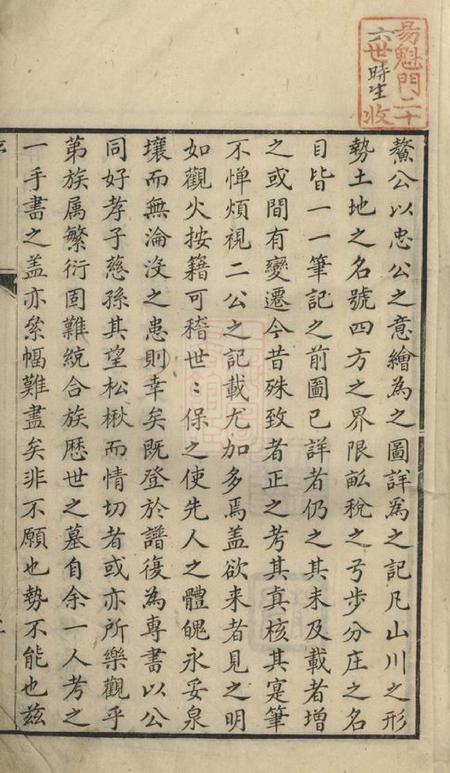 鰲公以忠公之意繪為之圖詳為之記凡山川之形
勢土地之名號四方之界限畝稅之弓步分庄之名
目皆一一筆記之前圖已詳者仍之其未及載者增
之或間有變遷今昔殊致者正之考其真核其寔筆
不憚煩視二公之記載尤加多焉盖欲来者見之明
如觀火按籍可稽世〻保之使先人之體魄永妥泉
壤而無淪没之患則幸矣既登於譜復為專書以公
同好孝子慈孫其望松楸而情切者或亦所樂觀乎
第族属繁衍固難統合族歷世之墓自余一人考之
一手書之盖亦㡮幅難盡矣非不願也勢不能也兹
易魁門二十
六世時生收